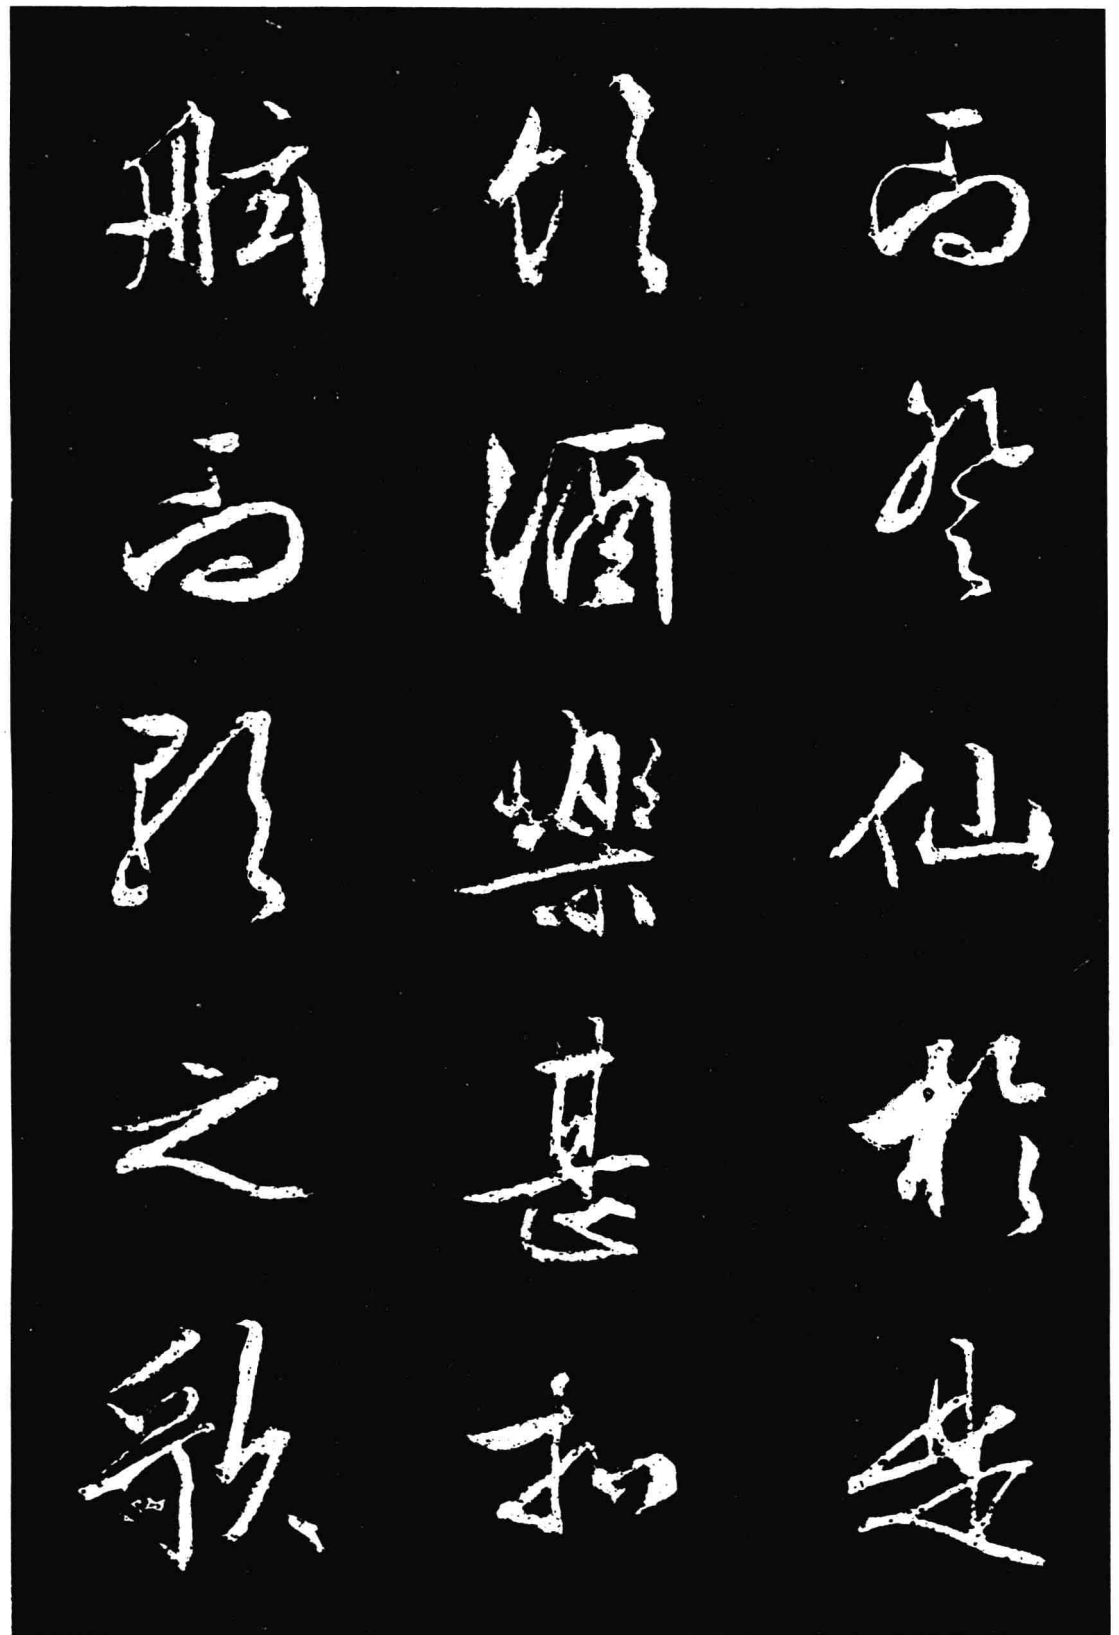 而登仙於是
飲酒樂甚扣
舷而歌之歌